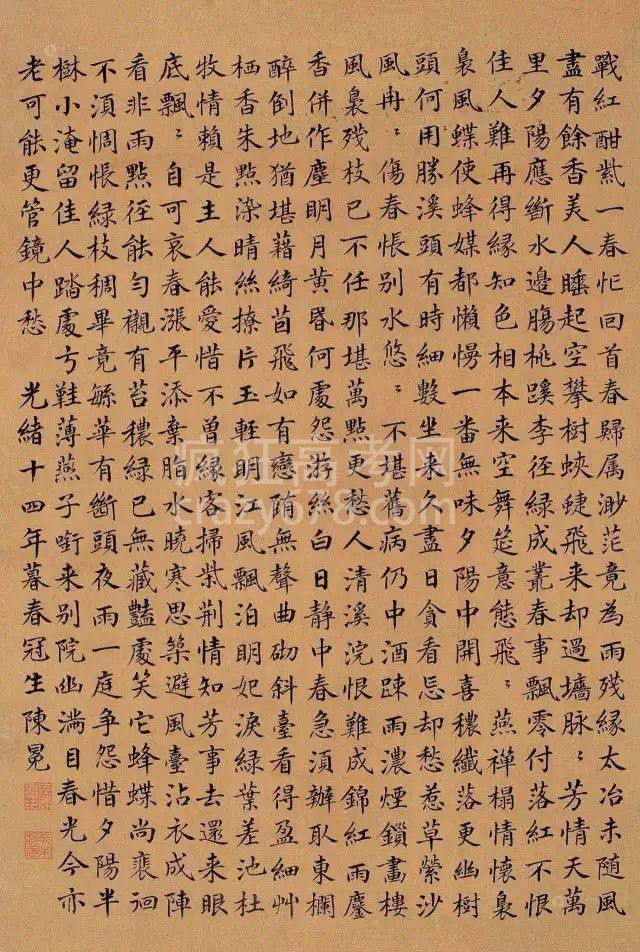 戰紅酣紫一春忙回首春歸属渺茫竟為雨残緣太冶未随風
盡有餘香美人睡起空攀樹蛺蜨飛来却過墻脉〻芳情天萬
里夕陽應斷水邊腸桃蹊李徑緑成叢春事飄零付落紅不恨
佳人難再得緣知色相本来空舞筵意態飛〻燕禅榻情懷裊
裊風蝶使蜂媒都懶慢一番無味夕陽中開喜穠纖落更幽樹
頭何用勝溪頭有時細數坐来久盡日貪看忘却愁惹草縈沙
風冉〻傷春悵别水悠〻不堪舊病仍中酒踈雨濃煙鎖畫樓
風裊残枝已不任那堪萬點更愁人清溪浣恨難成錦紅雨鏖
香併作塵眀月黄昏何處怨游絲白日静中春急湏辦取東欄
醉倒地猶堪藉綺茵飛如有戀随無聲曲砌斜臺看得盈細艸
栖香朱點染晴絲撩片玉輕眀江風飄泊眀妃淚緑葉差池杜
牧情賴是主人能愛惜不曾緣客掃柴荆情知芳事去還来眼
底飄〻自可哀春漲平添棄脂水曉寒思築避風臺沾衣成陣
看非雨點徑能勻襯有苔穠緑已無藏豔處笑它蜂蝶尚裵徊
不湏惆悵緑枝稠畢竟緐華有斷頭夜雨一庭争怨惜夕陽半
楙小淹留佳人踏處弓鞋薄燕子銜来别院幽滿目春光今亦
老可能更管鏡中愁 光緒十四年暮春冠生陳冕
疯狂高考网
crazy678.com